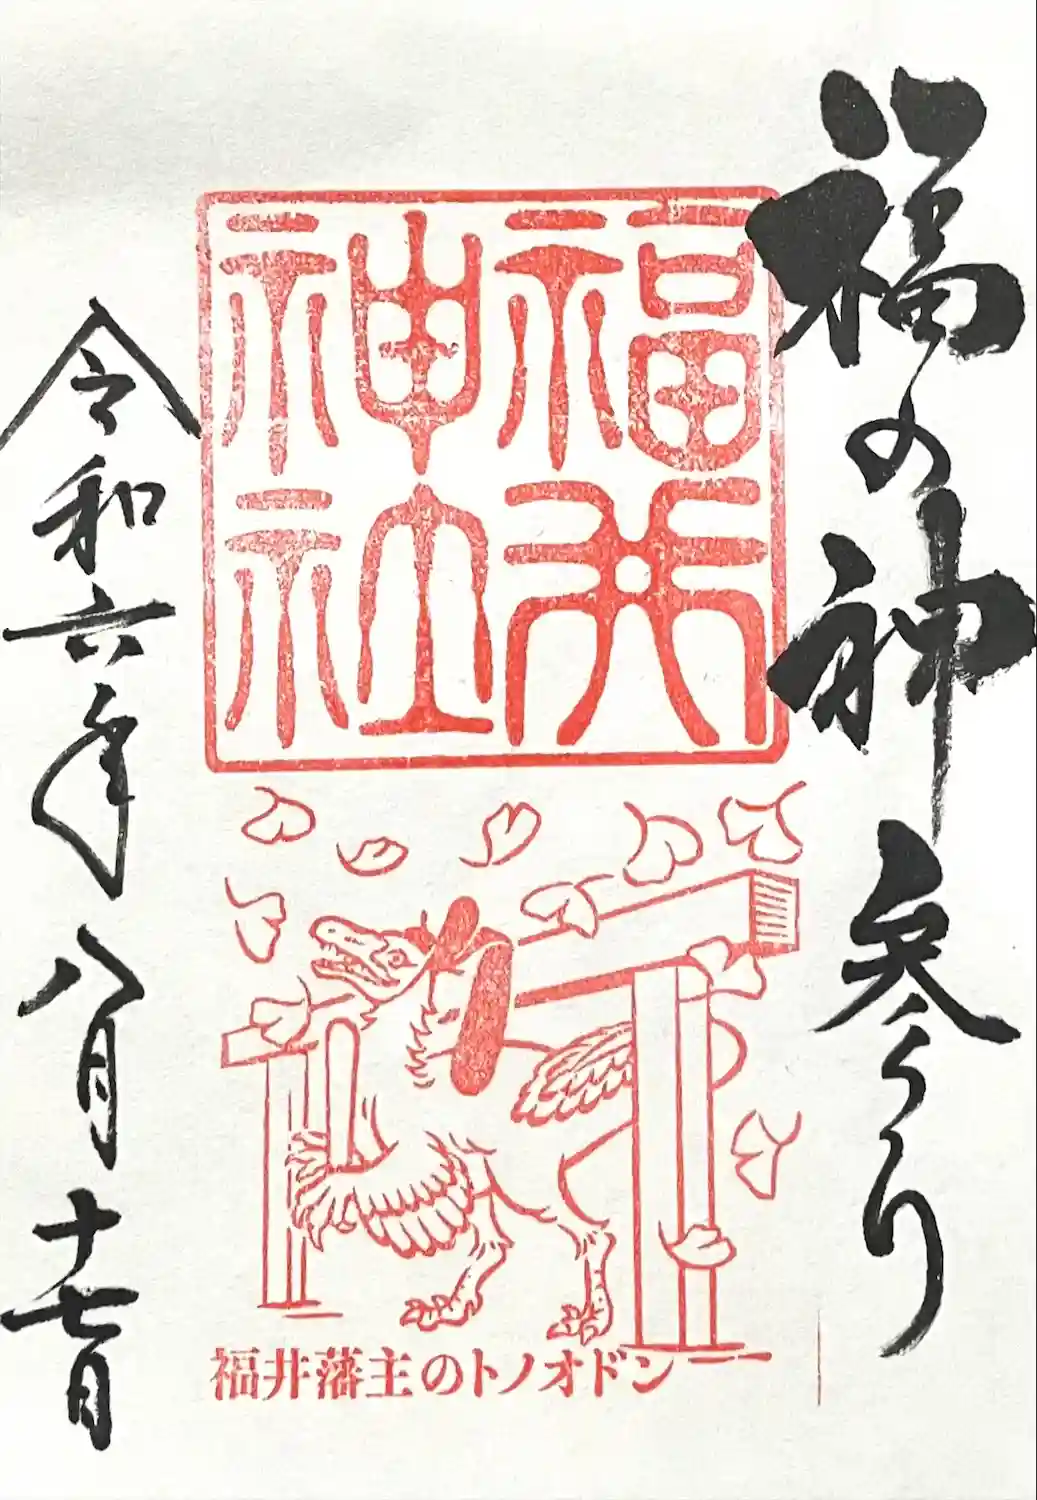 福の神参り
福井
神社
令和六年八月十七日
福井藩主のトノオドン